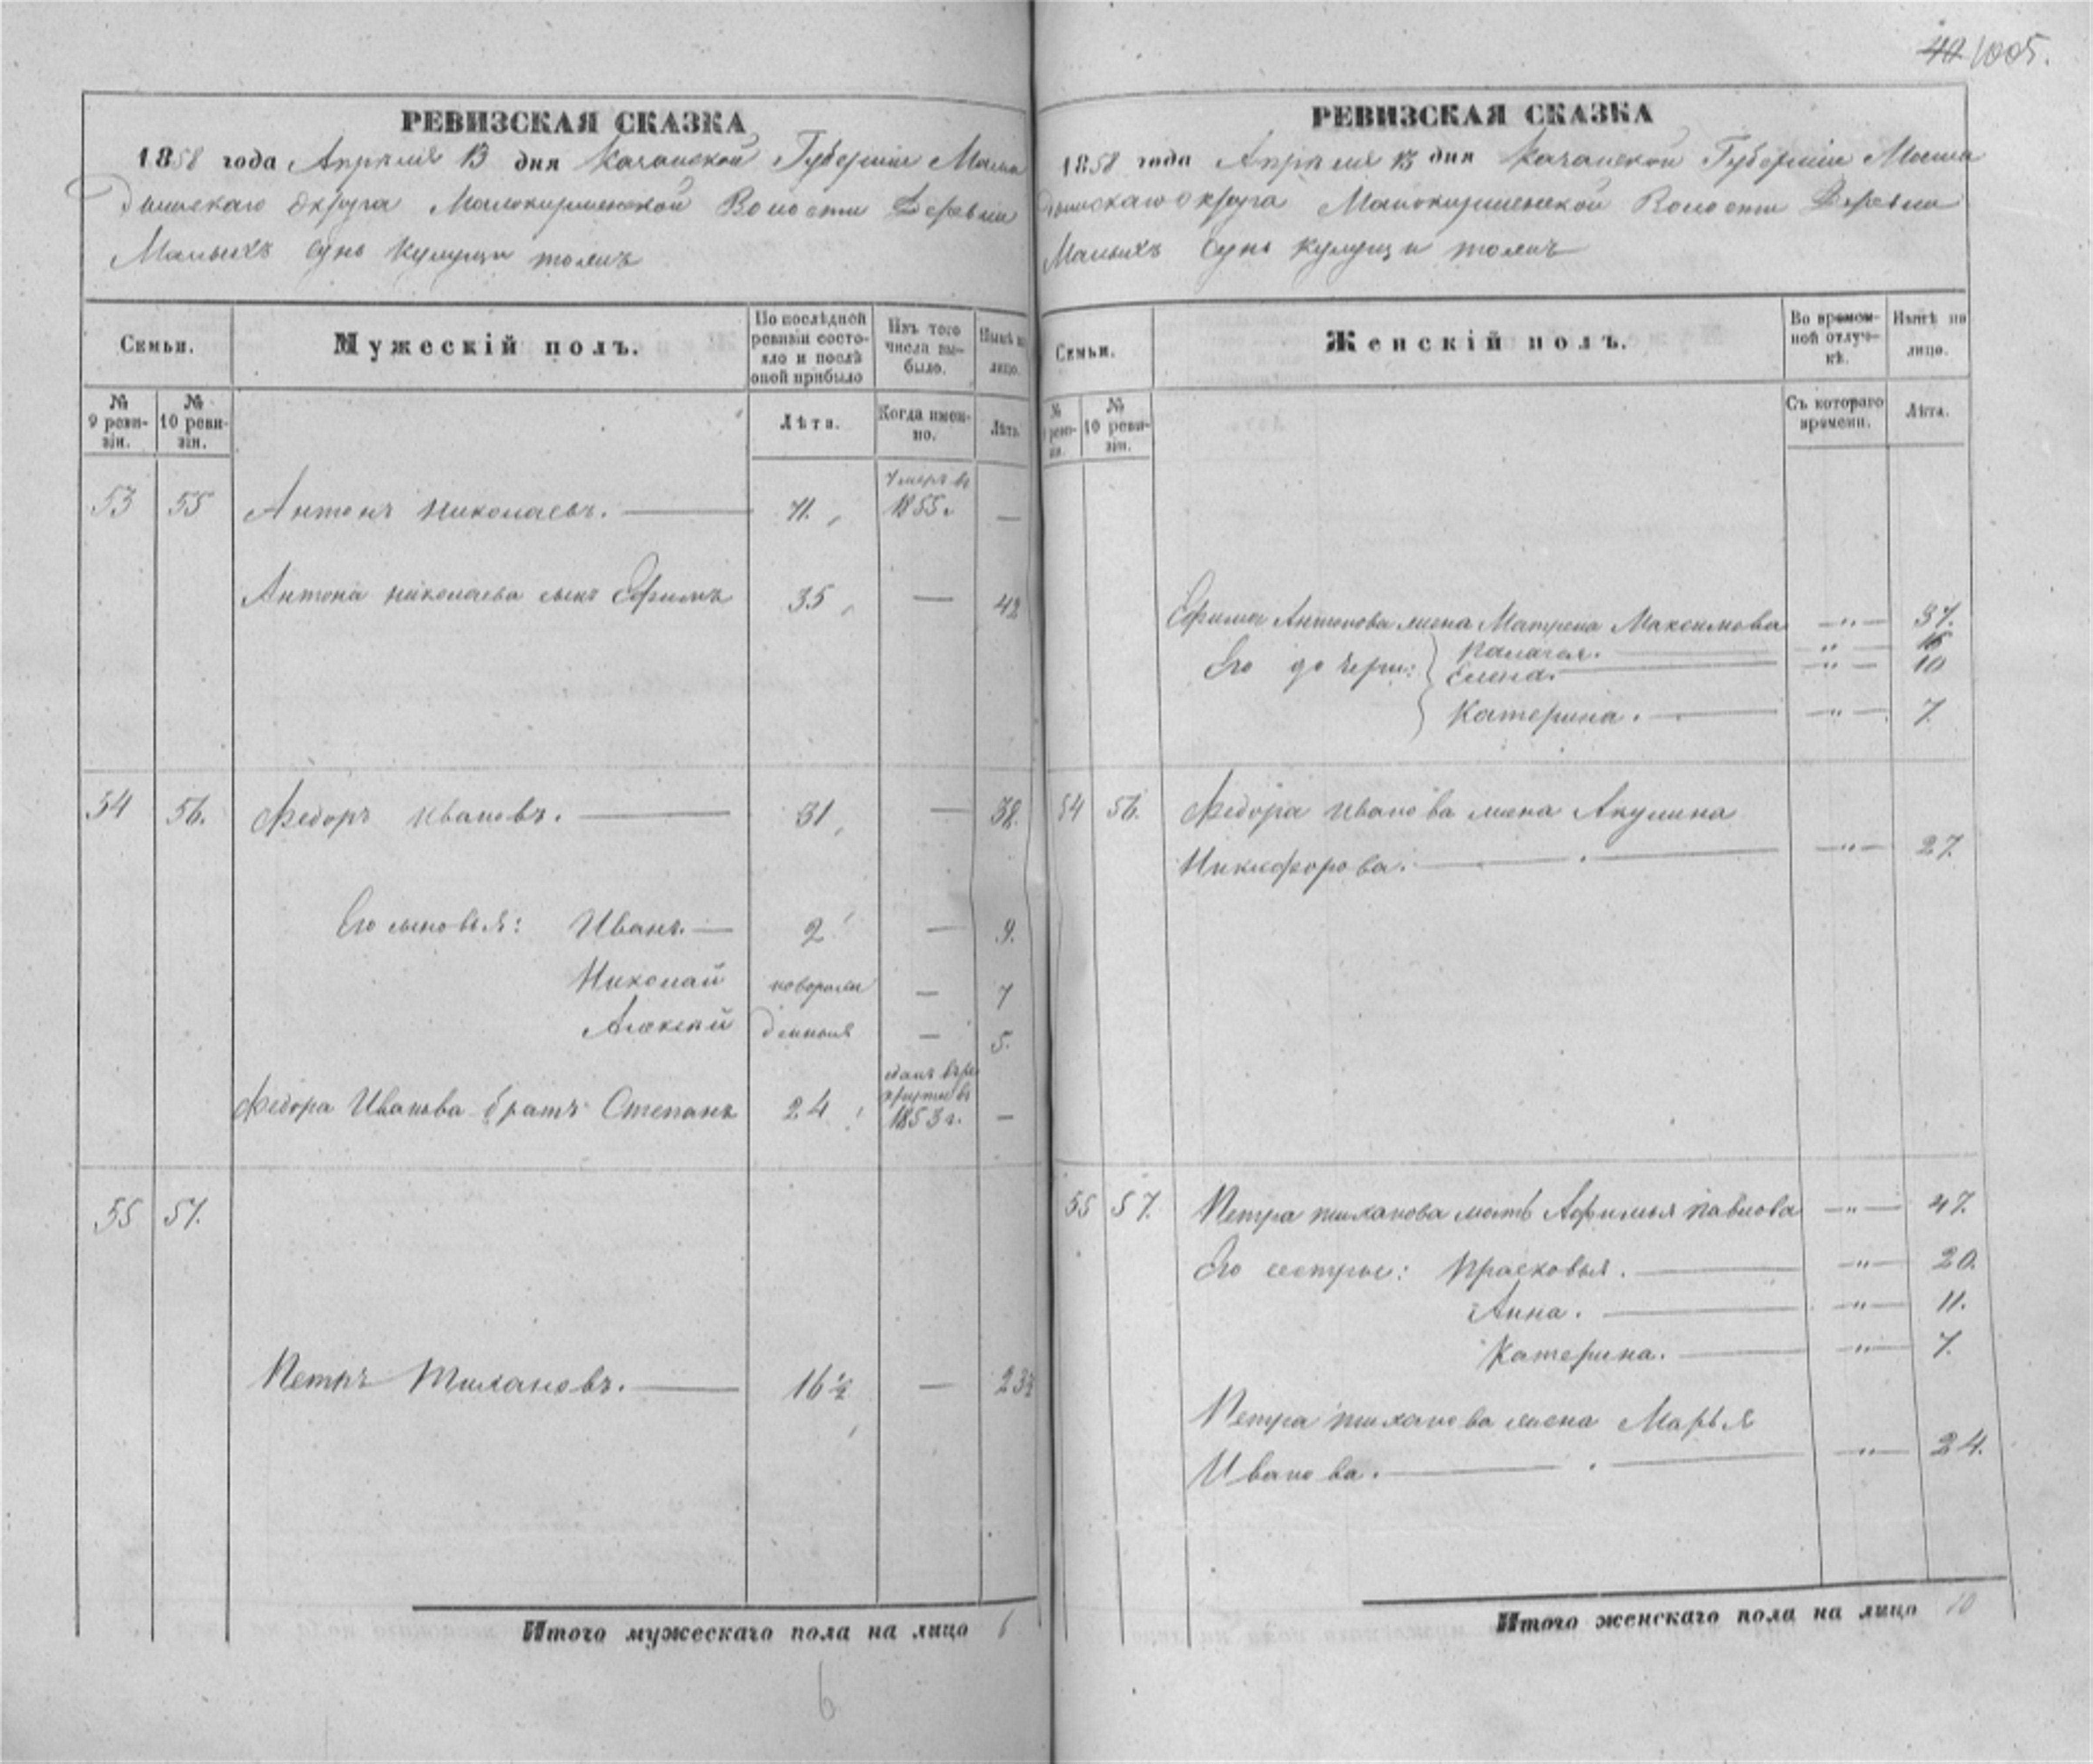 40 1005.
РЕВИЗСКАЯ СКАЗКА
1858 года Апреля 13 дня Казанской Губернии Мама
дышскаго округа Малокирменской Волости Деревни
Малыхъ Сунь Кулуци тожъ
Семьи.
Мужескій полъ.
По послѣдней ревизіи состояло и послѣ оной прибыло
Изъ того числа выбыло.
Нынѣ на лицо.
№ 9 ревизіи.
№ 10 ревизіи.
Лѣта.
Когда именно.
Лѣта.
53 55 Антонъ Николаевъ. 71. умеръ въ 1855. —
Антона Николаева сынъ Ефимъ 35 — 42
54 56. Федоръ Ивановъ. 31 — 38.
Его сыновья: Иванъ. 2 — 9.
Николай новорож — 7
Алексѣй денныя — 5.
Федора Иванова братъ Степанъ 24 въ рекруты въ 1853 г. —
55 57.
Петръ Тихановъ. 16½ — 23½
Итого мужескаго пола на лицо 6
6
РЕВИЗСКАЯ СКАЗКА
1858 года Апреля 13 дня Казанской Губернии Мама
дышскаго округа Малокирменской Волости Деревни
Малыхъ Сунь Кулуци тожъ
Семьи.
Женскій полъ.
Во временной отлучкѣ.
Нынѣ на лицо.
№ 9 ревизіи.
№ 10 ревизіи.
Съ котораго времени.
Лѣта.
Ефима Антонова жена Матрена Максимова —"— 37.
Его дочери: Палагея. —"— 16
Елена. —"— 10
Катерина. —"— 7.
54 56. Федора Иванова жена Акулина
Никифорова. —"— 27.
55 57. Петра Тиханова мать Афимья Павлова —"— 47.
Его сестры: Прасковья. —"— 20.
Анна. —"— 11.
Катерина. —"— 7.
Петра Тиханова жена Марья
Иванова. —"— 24.
Итого женскаго пола на лицо 10